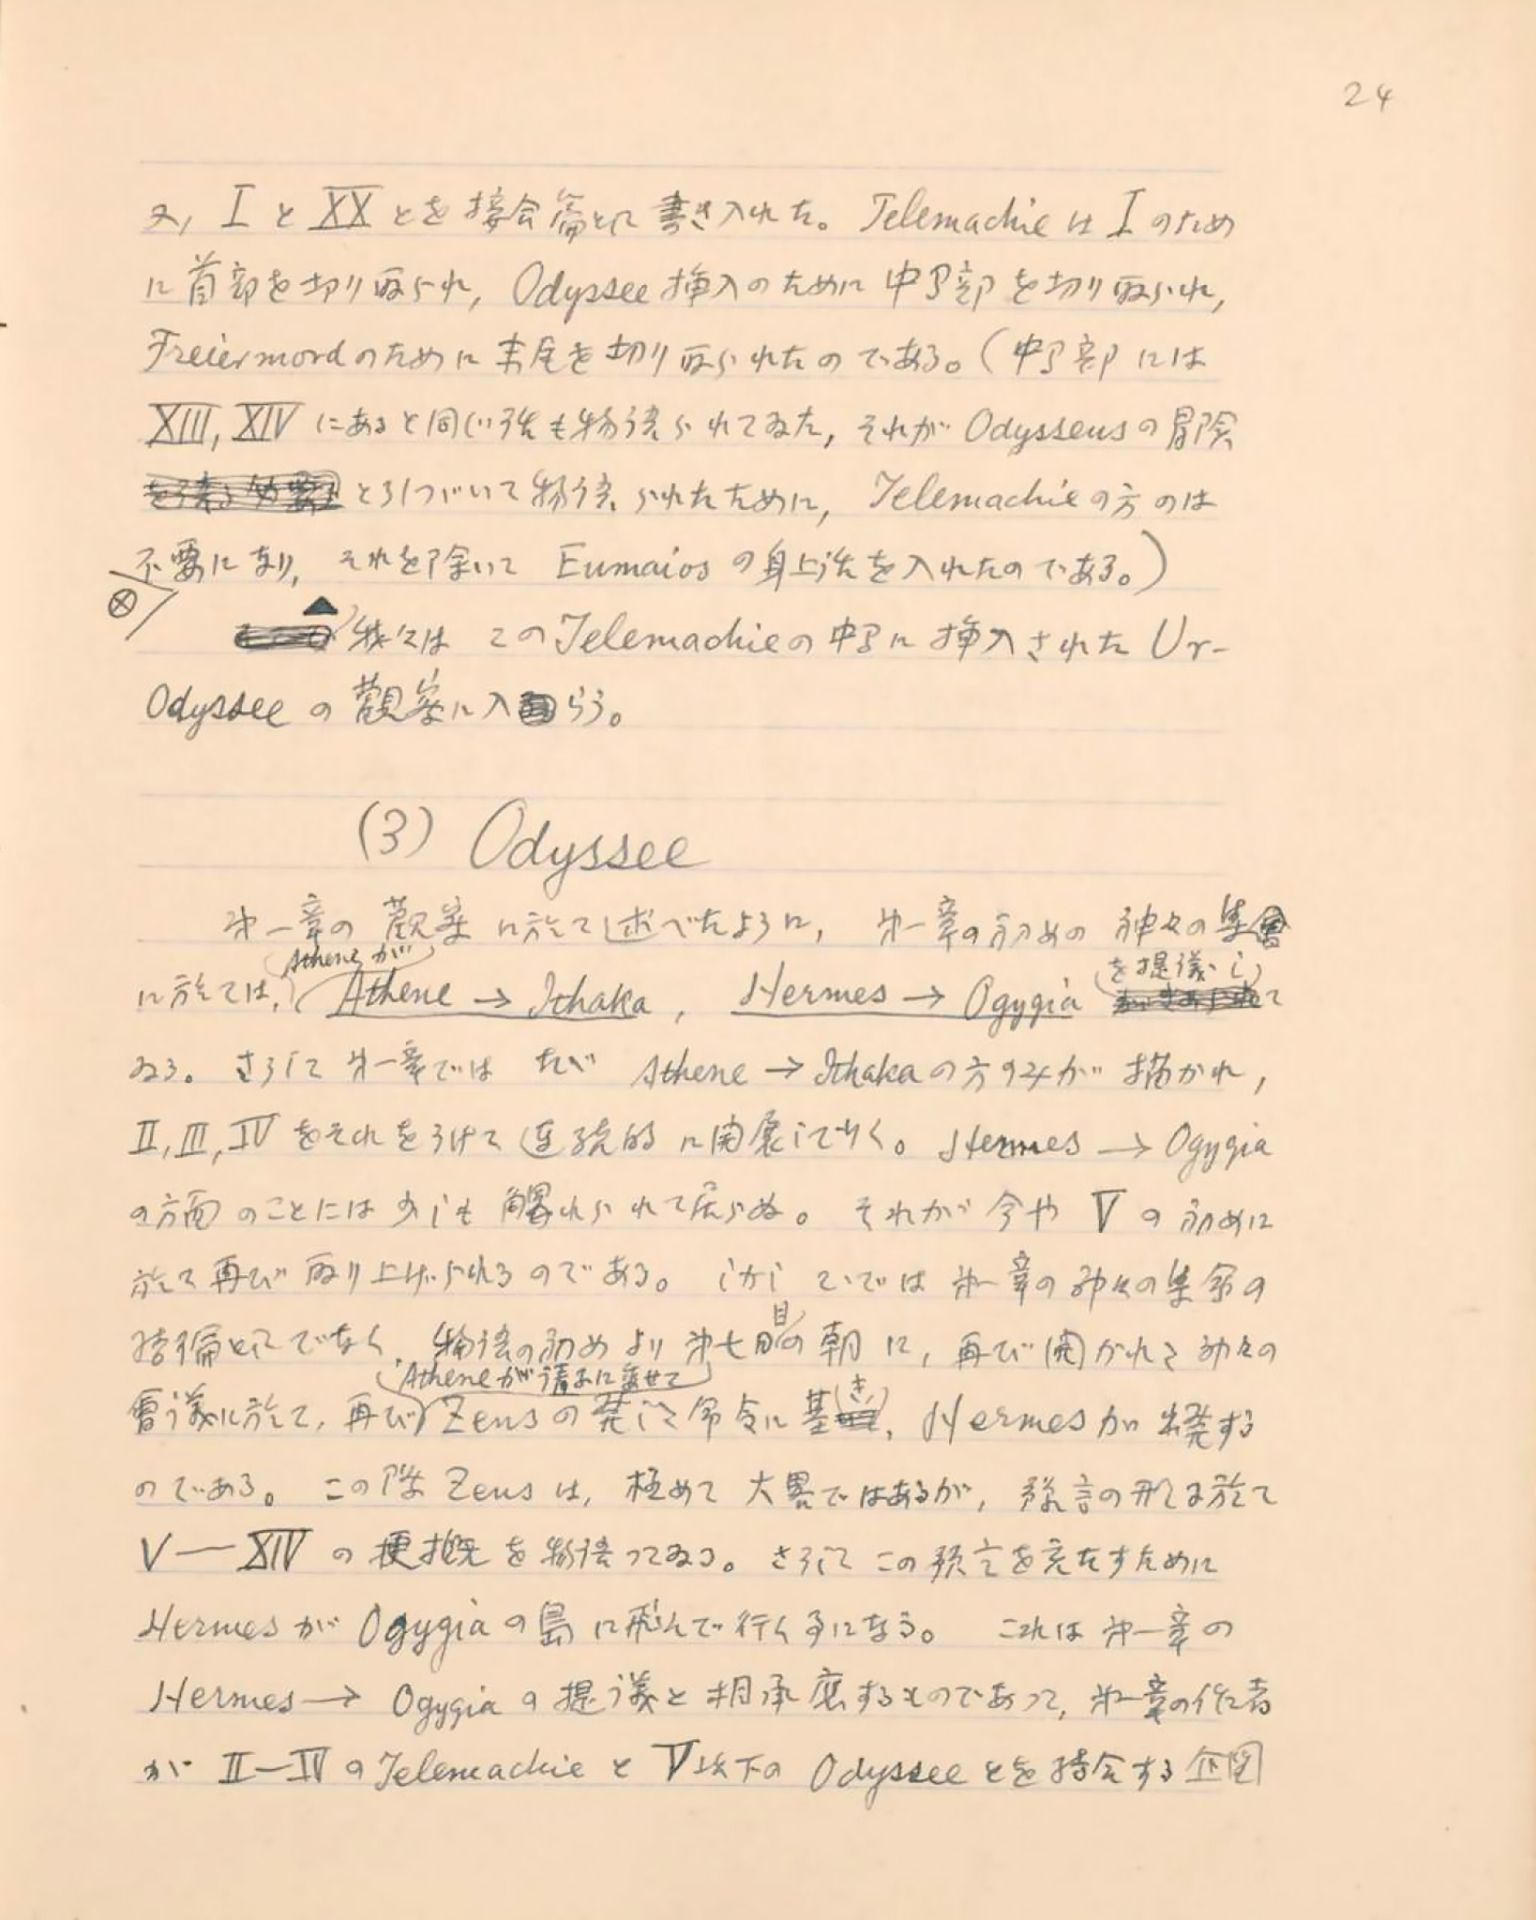 24
又, I と XX とを接合篇として書き入れた。Telemachie は I のため
に首部を切り取られ, Odyssee 挿入のために中間部を切り取られ,
Freiermord のために末尾を切り取られたのである。(中間部には
XIII, XIV にあると同じ話も物語られてゐた, それが Odysseus の冒険
とひつゞいて物語られたために, Telemachie の方のは
不要になり, それを除いて Eumaios の身上話を入れたのである。)
我々は この Telemachie の中間に挿入された Ur-
Odyssee の觀察に入らう。
(3) Odyssee
第一章の觀察に於て述べたように, 第一章の初めの神々の集會
に於ては, Athene が Athene → Ithaka, Hermes → Ogygia を提議して
ゐる。さうして第一章では たゞ Athene → Ithaka の方のみが描かれ,
II, III, IV をそれをうけて連続的に開展して行く。Hermes → Ogygia
の方面のことには少しも觸れられて居らぬ。それが今や V の初めに
於て再び取り上げられるのである。しかしこゝでは第一章の神々の集会の
続篇としてでなく, 物語の初めより第七日目の朝に, 再び開かれた神々の
會議に於て, 再び Athene が請ふに委せて Zeus の発した命令に基き, Hermes が出発する
のである。この際 Zeus は, 極めて大畧ではあるが, 予言の形に於て
V—XIV の梗概を物語つてゐる。さうしてこの預言を充たすために
Hermes が Ogygia の島に飛んで行く事になる。これは第一章の
Hermes → Ogygia の提議と相承應するものであつて, 第一章の作者
が II—IV の Telemachie と V 以下の Odyssee とを接合する企図